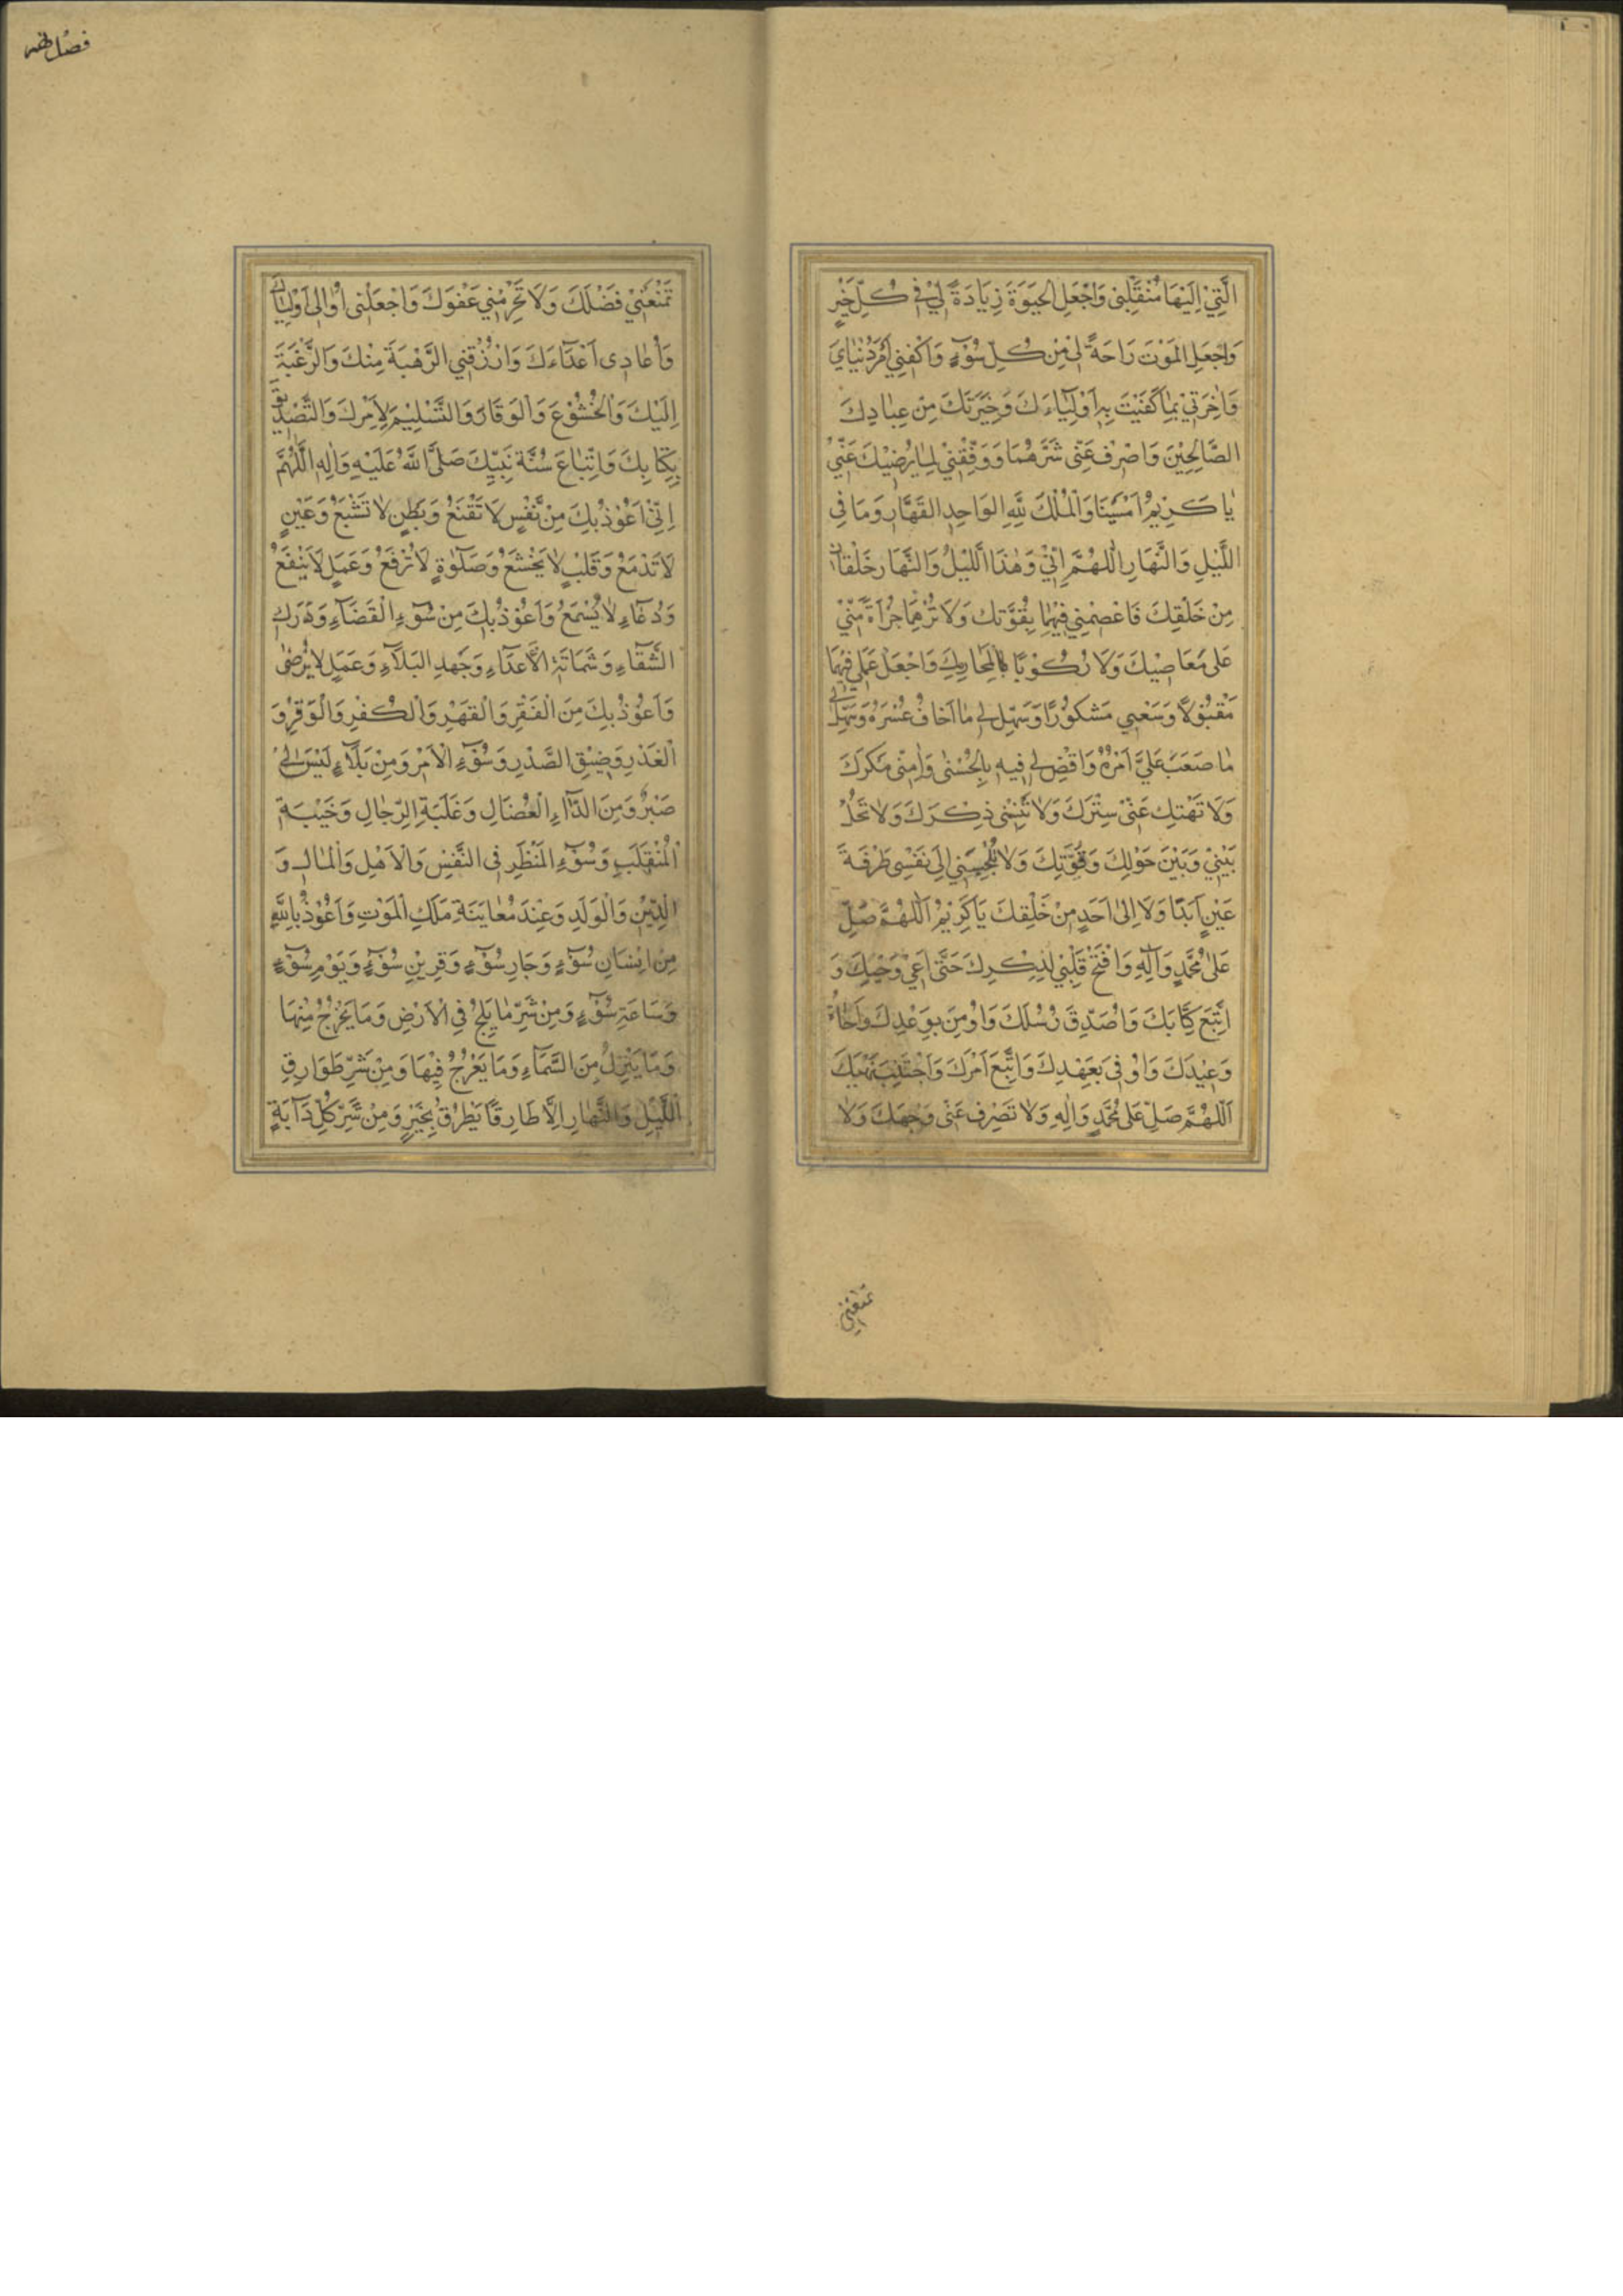 الَّتِيْ اِلَيْهَا مُنْقَلَبِيْ وَاجْعَلِ الحَيَوةَ زِيَادَةً لِيْ فِي كُلِّ خَيْرٍ
وَاجْعَلِ المَوْتَ رَاحَةً لِي مِنْ كُلِّ سُوْۤءٍ وَاكْفِنِي اَمْرَ دُنْيَايَ
وَاٰخِرَتِيْ بِمَا كَفَيْتَ بِهِ اَوْلِيَاۤءَكَ وَخِيَرَتَكَ مِنْ عِبَادِكَ
الصَّالِحِيْنَ وَاصْرِفْ عَنِّي شَرَّهُمَا وَوَفِّقْنِيْ لِمَا يُرْضِيْكَ عَنِّيْ
يَا كَرِيْمُ اَمْسَيْنَا وَالْمُلْكُ لِلّٰهِ الوَاحِدِ القَهَّارِ وَمَا فِي
اللَّيْلِ وَالنَّهَارِ اَللّٰهُمَّ اِنِّيْ وَهٰذَا اللَّيْلُ وَالنَّهَارُ خَلْقَانِ
مِنْ خَلْقِكَ فَاعْصِمْنِي فِيْهِمَا بِقُوَّتِكَ وَلَا تُرِهِمَا جُرْاَةً مِنِّيْ
عَلٰى مَعَاصِيْكَ وَلَا رُكُوْبًا لِمَحَارِمِكَ وَاجْعَلْ عَمَلِي فِيْهِمَا
مَقْبُوْلًا وَسَعْيِي مَشْكُوْرًا وَسَهِّلْ لِي مَا اَخَافُ عُسْرَهُ وَسَهِّلْ لِي
مَا صَعُبَ عَلَيَّ اَمْرُهُ وَاقْضِ لِي فِيهِ بِالْحُسْنٰى وَاٰمِنِّي مَكْرَكَ
وَلَا تَهْتِكْ عَنِّيْ سِتْرَكَ وَلَا تُنْسِنِي ذِكْرَكَ وَلَا تَحُلْ
بَيْنِيْ وَبَيْنَ حَوْلِكَ وَقُوَّتِكَ وَلَا تُلْجِئْنِي اِلٰى نَفْسِي طَرْفَةَ
عَيْنٍ اَبَدًا وَلَا اِلٰى اَحَدٍ مِنْ خَلْقِكَ يَا كَرِيْمُ اَللّٰهُمَّ صَلِّ
عَلٰى مُحَمَّدٍ وَآلِهِ وَافْتَحْ قَلْبِيْ لِذِكْرِكَ حَتّٰى اَعِيَ وَحْيَكَ وَ
اَتَّبِعَ كِتَابَكَ وَاُصَدِّقَ رُسُلَكَ وَاُوْمِنَ بِوَعْدِكَ وَاَخَافَ
وَعِيْدَكَ وَاُوْفِيَ بِعَهْدِكَ وَاَتَّبِعَ اَمْرَكَ وَاَجْتَنِبَ نَهْيَكَ
اَللّٰهُمَّ صَلِّ عَلٰى مُحَمَّدٍ وَاٰلِهِ وَلَا تَصْرِفْ عَنِّي وَجْهَكَ وَلَا
تمنعني
تَمْنَعْنِيْ فَضْلَكَ وَلَا تَحْرِمْنِي عَفْوَكَ وَاجْعَلْنِي اُوَالِي اَوْلِيَاۤءَكَ
وَاُعَادِى اَعْدَاۤءَكَ وَارْزُقْنِي الرَّهْبَةَ مِنْكَ وَالرَّغْبَةَ
اِلَيْكَ وَالْخُشُوْعَ وَالوَقَارَ وَالتَّسْلِيْمَ لِاَمْرِكَ وَالتَّصْدِيْقَ
بِكِتَابِكَ وَاتِّبَاعَ سُنَّةِ نَبِيِّكَ صَلَّى اللّٰهُ عَلَيْهِ وَاٰلِهِ اَللّٰهُمَّ
اِنِّيْ اَعُوْذُ بِكَ مِنْ نَفْسٍ لَا تَقْنَعُ وَبَطْنٍ لَا تَشْبَعُ وَعَيْنٍ
لَا تَدْمَعُ وَقَلْبٍ لَا يَخْشَعُ وَصَلٰوةٍ لَا تُرْفَعُ وَعَمَلٍ لَا يَنْفَعُ
وَدُعَاۤءٍ لَا يُسْمَعُ وَاَعُوْذُ بِكَ مِنْ سُوْۤءِ الْقَضَاۤءِ وَدَرَكِ
الشَّقَاۤءِ وَشَمَاتَةِ الْاَعْدَاۤءِ وَجَهْدِ البَلَاۤءِ وَعَمَلٍ لَا يُرْضٰى
وَاَعُوْذُ بِكَ مِنَ الْفَقْرِ وَالْقَهْرِ وَالْكُفْرِ وَالْوَقْرِ وَ
الْغَدْرِ وَضِيْقِ الصَّدْرِ وَسُوْۤءِ الْاَمْرِ وَمِنْ بَلَاۤءٍ لَيْسَ لِي
صَبْرٌ وَمِنَ الدَّاۤءِ الْعُضَالِ وَغَلَبَةِ الرِّجَالِ وَخَيْبَةِ
الْمُنْقَلَبِ وَسُوْۤءِ المَنْظَرِ فِي النَّفْسِ وَالْاَهْلِ وَالْمَالِ وَ
الدِّيْنِ وَالْوَلَدِ وَعِنْدَ مُعَايَنَةِ مَلَكِ الْمَوْتِ وَاَعُوْذُ بِاللّٰهِ
مِنْ اِنْسَانِ سُوْۤءٍ وَجَارِ سُوْۤءٍ وَقَرِيْنِ سُوْۤءٍ وَيَوْمِ سُوْۤءٍ
وَسَاعَةِ سُوْۤءٍ وَمِنْ شَرِّ مَا يَلِجُ فِي الْاَرْضِ وَمَا يَخْرُجُ مِنْهَا
وَمَا يَنْزِلُ مِنَ السَّمَاۤءِ وَمَا يَعْرُجُ فِيْهَا وَمِنْ شَرِّ طَوَارِقِ
اللَّيْلِ وَالنَّهَارِ اِلَّا طَارِقًا يَطْرُقُ بِخَيْرٍ وَمِنْ شَرِّ كُلِّ دَاۤبَّةٍ